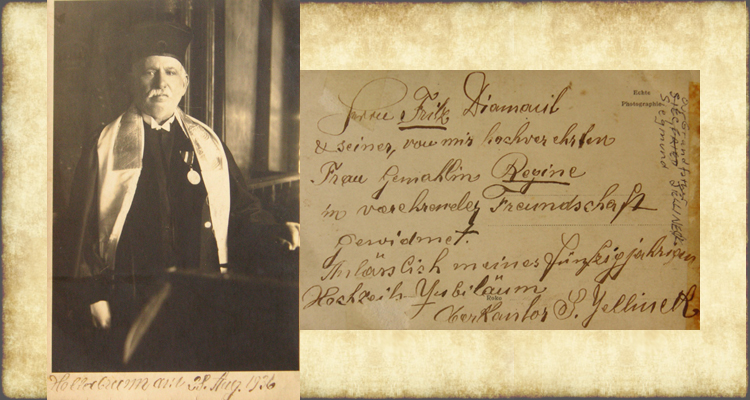 Hollabrunn am 28. Aug. 1926
Herrn Fritz Diamant
& seiner, von mir hochverehrten
Frau Gemahlin Regine
in verehrender Freundschaft
gewidmet.
Anlässlich meines fünfzigjährigen
Hochzeits Jubiläum
Oberkantor S. Yellinek
Echte
Photographie
SIEGFRIED JELLINEK
Siegmund